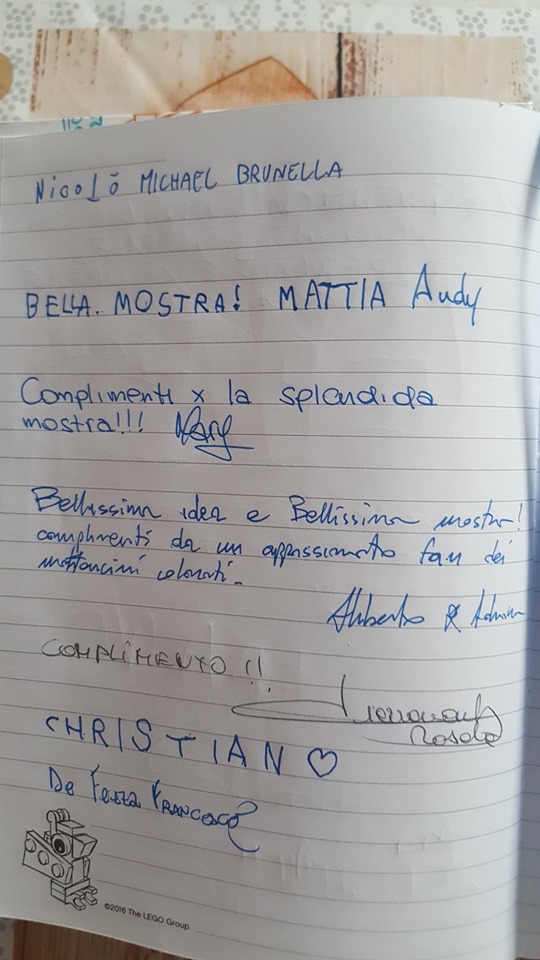 Nicolò MICHAEL BRUNELLA
BELLA. MOSTRA! MATTIA Andy
Complimenti x la splendida
mostra!!!
Bellissima idea e Bellissima mostra!
complimenti da un appassionato fan dei
mattoncini colorati.
Aliberto &
COMPLIMENTO!!
CHRISTIAN
De Francesco
©2016 The LEGO Group.